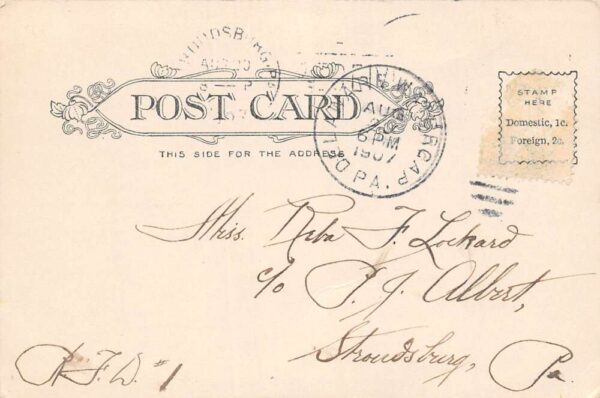 POST CARD
THIS SIDE FOR THE ADDRESS
STAMP
HERE
Domestic, 1c.
Foreign, 2c.
DELAWARE WATER GAP.
AUG
6 PM
1907
PA.
Miss. Reba F. Lockard
c/o P. J. Albert,
Stroudsburg, Pa
R. F. D. #1